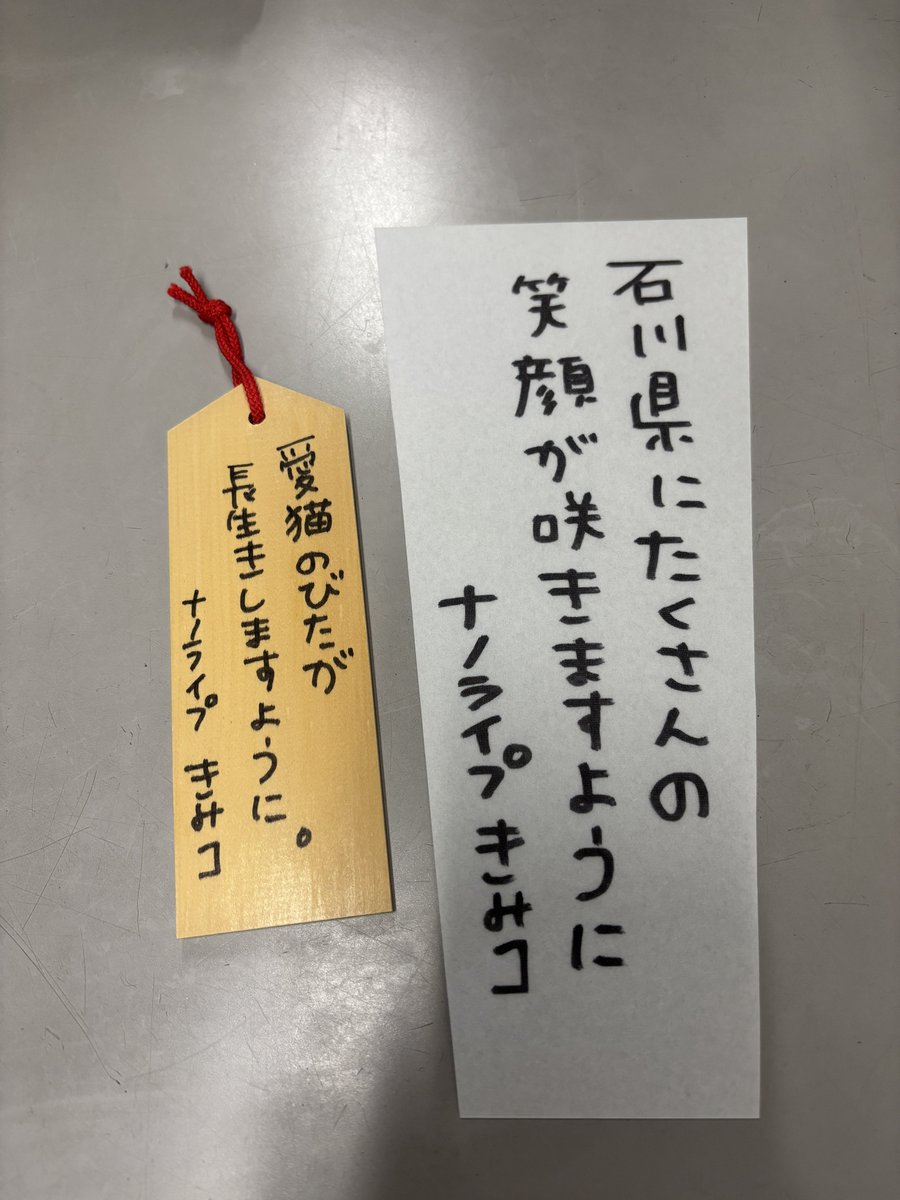 愛猫のびたが
長生きしますように。
ナノライプ きみコ
石川県にたくさんの
笑顔が咲きますように
ナノライプ きみコ